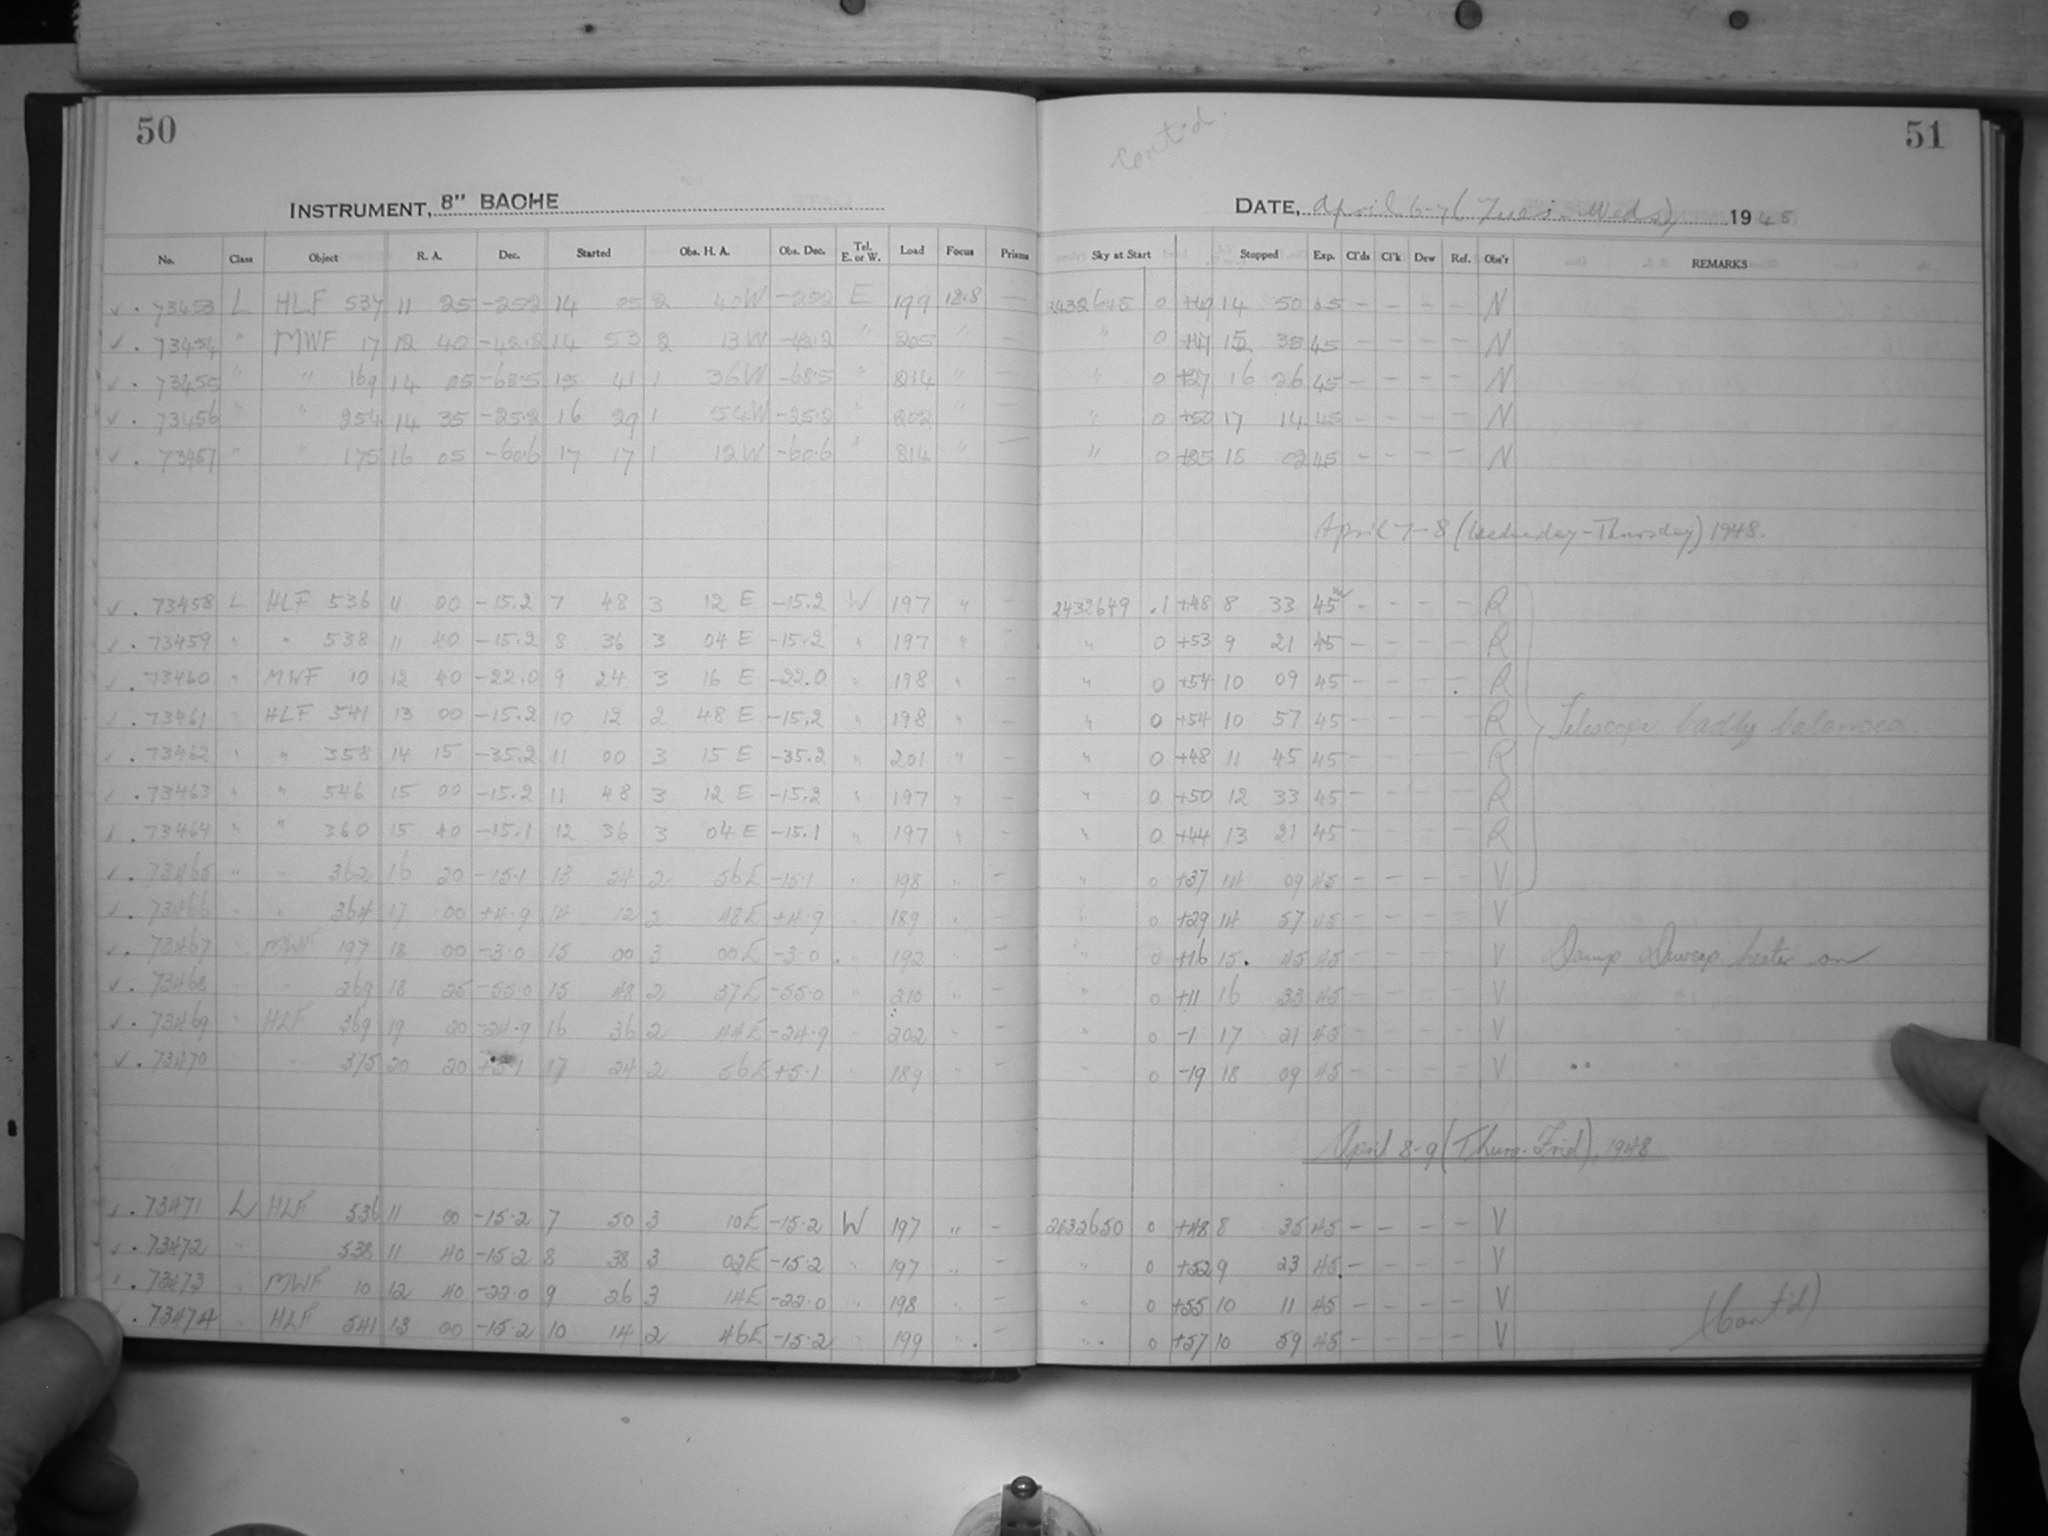 50
cont'd.
51
INSTRUMENT, 8" BACHE
DATE, April 6-7 (Tues-Weds) 1948
No. Class Object R. A. Dec. Started Obs. H. A. Obs. Dec. Tel. E. or W. Load Focus Prisms Sky at Start Stopped Exp. Cl'ds Cl'k Dew Ref. Obs'r REMARKS
✓ . 73453 L HLF 537 11 25 -25.2 14 05 2 40W -25.2 E 199 12.8 — 2432648 0 +49 14 50 45 - - - - N
✓ . 73454 " MWF 17 12 40 -42.2 14 53 2 13W -42.2 " 205 " — " 0 15 38 45 - - - - N
✓ . 73455 " " 169 14 05 -68.5 15 41 1 36W -68.5 " 214 " — " 0 +27 16 26 45 - - - - N
✓ . 73456 " " 254 14 35 -25.2 16 29 1 54W -25.2 " 202 " — " 0 +50 17 14 45 - - - - N
✓ . 73457 " " 175 16 05 -60.6 17 17 1 12W -60.6 " 214 " — " 0 +25 18 02 45 - - - - N
April 7-8 (Wednesday-Thursday) 1948.
✓ . 73458 L HLF 536 11 00 -15.2 7 48 3 12 E -15.2 W 197 " - 2432649 .1 +48 8 33 45m - - - - R
✓ . 73459 " " 538 11 40 -15.2 8 36 3 04 E -15.2 " 197 " - " 0 +53 9 21 45 - - - - R
✓ . 73460 " MWF 10 12 40 -22.0 9 24 3 16 E -22.0 " 198 " - " 0 +54 10 09 45 - - - - R
✓ . 73461 " HLF 541 13 00 -15.2 10 12 2 48 E -15.2 " 198 " - " 0 +54 10 57 45 - - - - R Telescope badly balanced.
✓ . 73462 " " 358 14 15 -35.2 11 00 3 15 E -35.2 " 201 " - " 0 +48 11 45 45 - - - - R
✓ . 73463 " " 546 15 00 -15.2 11 48 3 12 E -15.2 " 197 " - " 0 +50 12 33 45 - - - - R
✓ . 73464 " " 360 15 40 -15.1 12 36 3 04 E -15.1 " 197 " - " 0 +44 13 21 45 - - - - R
✓ . 73465 " " 362 16 20 -15.1 13 24 2 56E -15.1 " 198 " - " 0 +37 14 09 45 - - - - V
✓ . 73466 " " 364 17 00 +4.9 14 12 2 48E +4.9 " 189 " - " 0 +29 14 57 45 - - - - V
✓ . 73467 " MWF 197 18 00 -3.0 15 00 3 00E -3.0 " 192 " - " 0 +16 15 45 45 - - - - V Damp Dewcap heater on
✓ . 73468 " " 269 18 25 -55.0 15 48 2 37E -55.0 " 210 " - " 0 +11 16 33 45 - - - - V
✓ . 73469 " HLF 369 19 20 -24.9 16 36 2 44E -24.9 " 202 " - " 0 -1 17 21 45 - - - - V
✓ . 73470 " " 375 20 20 +5.1 17 24 2 56E +5.1 " 189 " - " 0 -19 18 09 45 - - - - V " "
April 8-9 (Thurs-Frid), 1948
✓ . 73471 L HLF 536 11 00 -15.2 7 50 3 10E -15.2 W 197 " - 2432650 0 +48 8 35 45 - - - - V
✓ . 73472 " 538 11 40 -15.2 8 38 3 02E -15.2 " 197 " - " 0 +52 9 23 45 - - - - V
✓ . 73473 " MWF 10 12 40 -22.0 9 26 3 14E -22.0 " 198 " - " 0 +55 10 11 45 - - - - V (Cont'd)
✓ . 73474 " HLF 541 13 00 -15.2 10 14 2 46E -15.2 " 199 " - " 0 +57 10 59 45 - - - - V